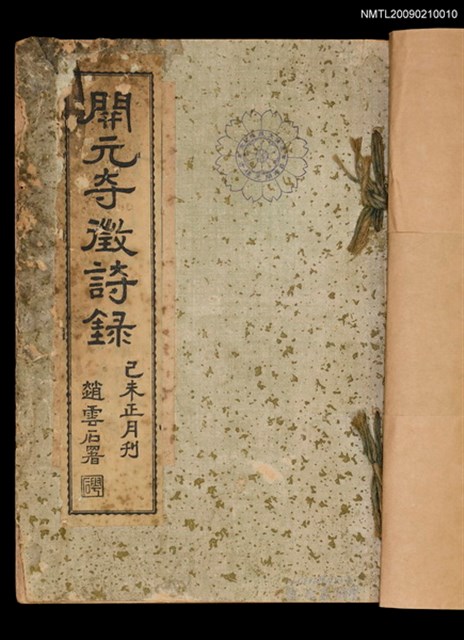 NMTL20090210010
開元寺徵詩録
己未正月刊
趙雲石署